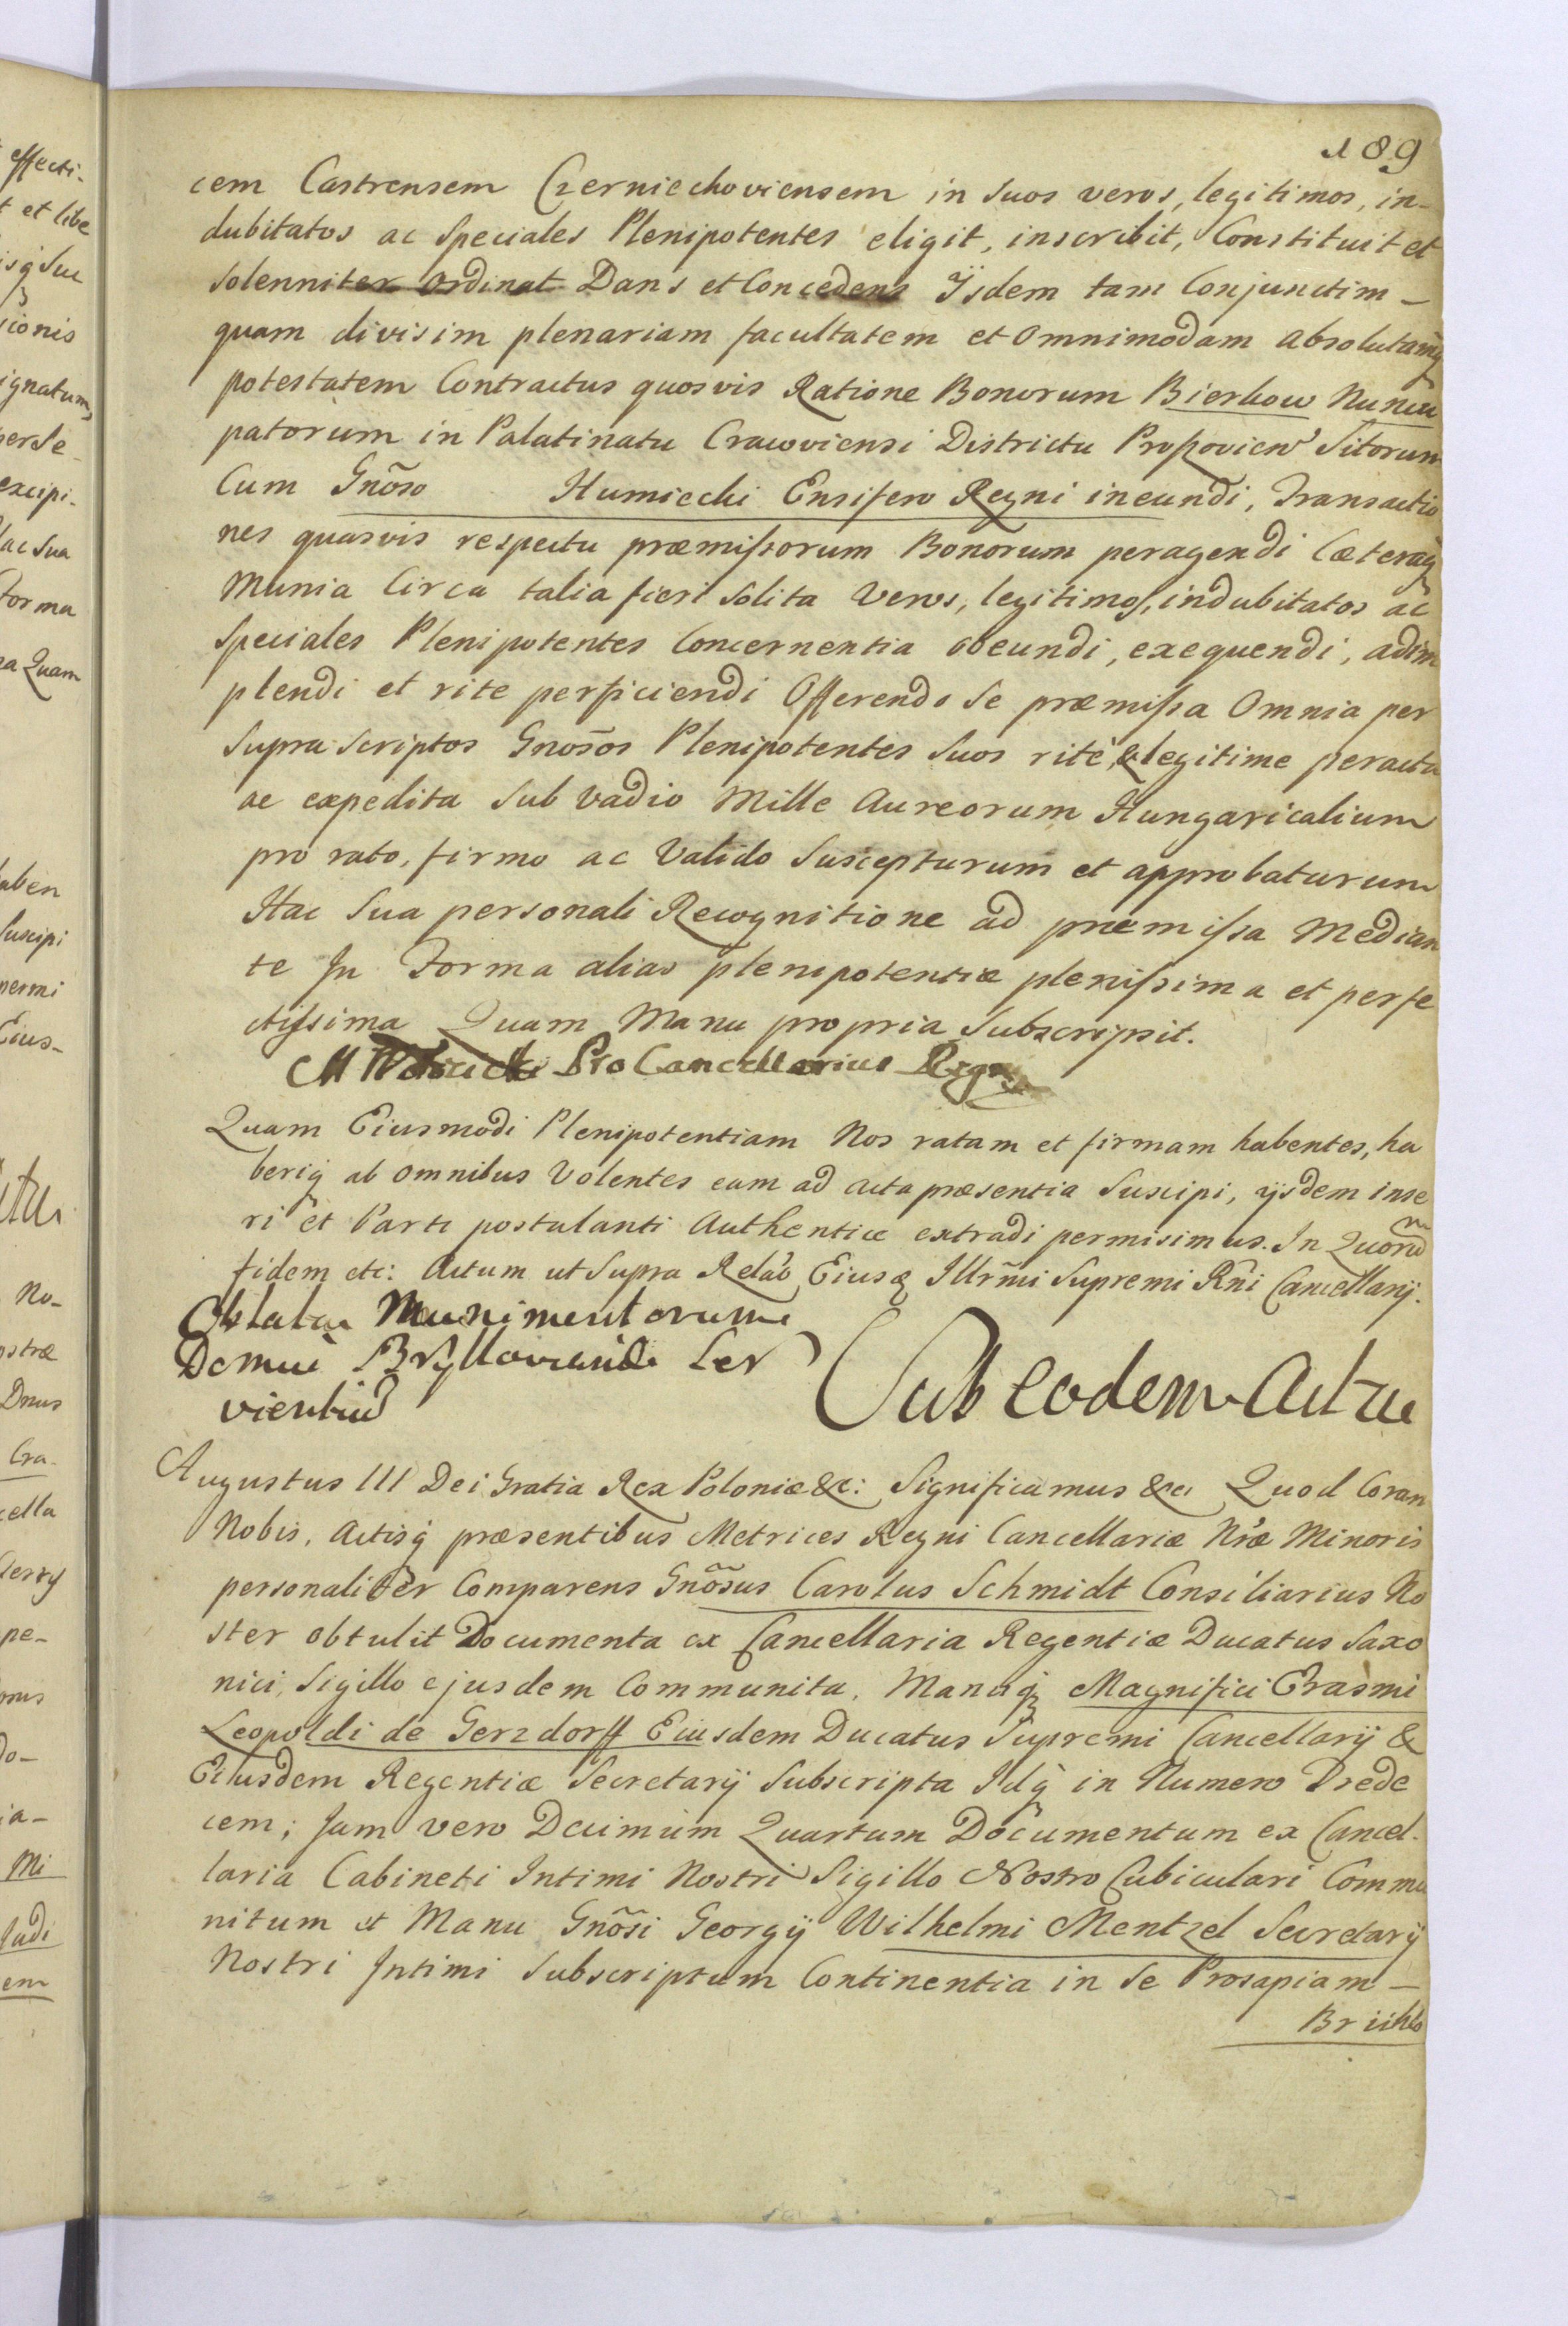 189
cem Castrensem Czerniechoviensem in Suos veros, legitimos, in-
dubitatos ac Speciales Plenipotentes eligit, inscribit, Constituit et
Solenniter ordinat Dans et Concedens Ijsdem tam Conjunctim –
quam divisim plenariam facultatem et omnimodam absolutamq
potestatem Contractus quosvis Ratione Bonorum Bierkow Nuncu
patorum in Palatinatu Cracoviensi Districtu Proszovien Sitorum
Cum Gnõso Humiecki Ensifero Regni ineundi, Transactio
nes quasvis respectu præmissorum Bonorum peragendi Cæteraq
Munia Circa talia fieri Solita Veros, legitimos, indubitatos ac
Speciales Plenipotentes Concernentia obeundi, exequendi, adim
plendi et rite perficiendi Offerendo Se præmissa Omnia per
Supra Scriptos Gnosõs Plenipotentes Suos ritè, & legitime peracta
ac expedita Sub Vadio Mille Aureorum Hungaricalium
pro rato, firmo ac Valido Suscepturum et approbaturum
Hac Sua personali Recognitione ad præmissa Median
te In Forma alias plenipotentiæ plenissima et perfe
ctissima Quam Manu propria Subscripsit.
M Wodzicki Pro Cancellarius Regni
Quam Eiusmodi Plenipotentiam Nos ratam et firmam habentes, ha
beriq ab omnibus Volentes eam ad Acta præsentia Suscipi, ijsdem inse
ri et Parti postulanti Authentice extradi permisimus. In Quorũm
fidem etc: Actum ut Supra Relaõ Eiusq Illrm̃i Supremi Rñi Cancellarij.
Oblata Munimentorum
Domui Bryllovianæ Ser
vientiũ
Sub Eodem Actu
Augustus III Dei Gratia Rex Poloniæ &c: Significamus &c Quod Coram
Nobis, Actisq præsentibus Metrices Regni Cancellariæ Nræ Minoris
personaliter Comparens Gnõsus Carolus Schmidt Consiliarius No
ster obtulit Documenta ex Cancellaria Regentiæ Ducatus Saxo
nici, Sigillo ejusdem Communita, Manuq Magnifici Erasmi
Leopoldi de Gerzdorff Eiusdem Ducatus Supremi Cancellarij &
Eiusdem Regentiæ Secretarij Subscripta Idq in Numero Trede
cem; Jam vero Decimum Quartum Documentum ex Cancel-
laria Cabineti Intimi Nostri Sigillo Nostro Cubiculari Commu
nitum et Manu Gnõsi Georgij Wilhelmi Mentzel Secretarij
Nostri Intimi Subscriptum Continentia in Se Prosapiam –
Brühlo